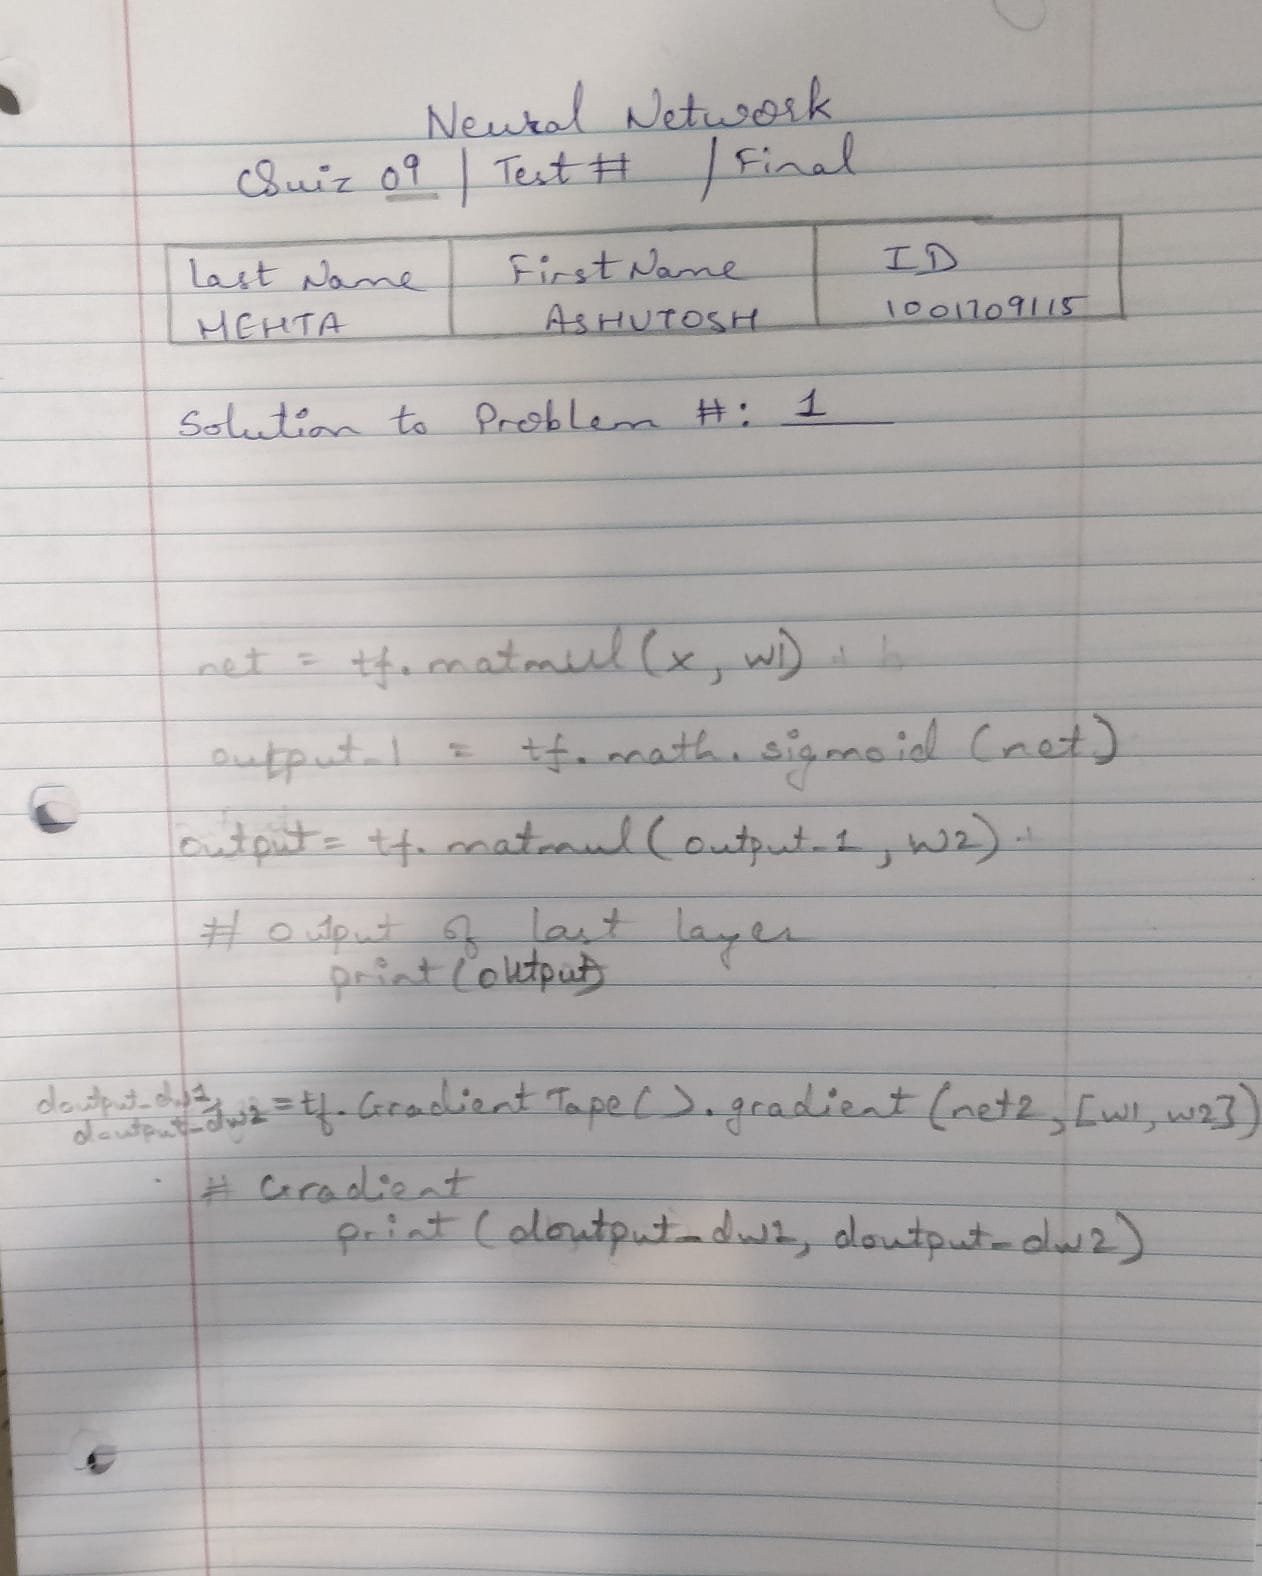 Neural Network
Quiz 09 | Test # | Final
Last Name First Name ID
MEHTA ASHUTOSH 1001709115
Solution to Problem #: 1
net = tf.matmul(x, w1) + b
output_1 = tf.math.sigmoid(net)
output = tf.matmul(output_1, w2)
# output of last layer
print(output)
doutput_dw1,
doutput_dw2 = tf.GradientTape().gradient(net2, [w1, w2])
# Gradient
print(doutput_dw1, doutput_dw2)